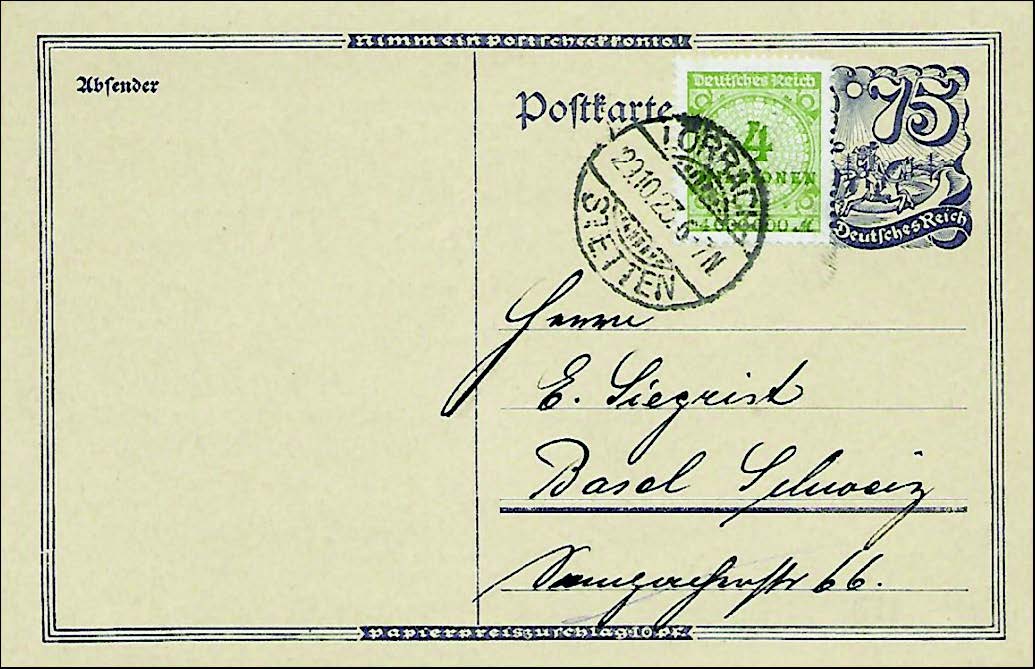 Nimm ein Postscheckkonto!
Absender
Postkarte
Deutsches Reich
4
75
Deutsches Reich
LÖRRACH
STETTEN
Herrn
E. Siegrist
Basel Schweiz
66.
Papierpreiszuschlag 10 Pf.